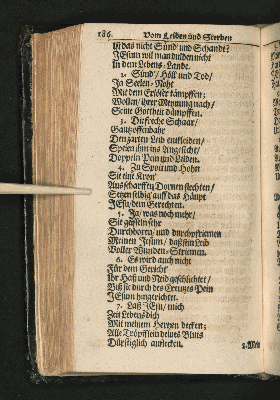 186. Vom Leiden und Sterben
Ist das nicht Sünd' und Schande?
JEsum wil man dulden nicht
In dem Lebens-Lande.
2. Sünd'/ Höll und Tod/
Ja Seelen-Noht
Mit dem Erlöser kämpffen;
Wollen/ ihrer Meynung nach/
Seine Gottheit dämpffen.
3. Die freche Schaar/
Gantz offenbahr
Den zarten Leib entkleiden/
Speyen ihm ins Angesicht/
Doppeln Pein und Leiden.
4. Zu Spott und Hohn
Sie eine Kron'
Aus scharffen Dornen flechten/
Setzen selbig' auff das Häupt
JEsu/ dem Gerechten.
5. Ja/ was noch mehr/
Sie geisseln sehr
Durchboren/ und durchpfriemen
Meinen JEsum/ daß sein Leib
Voller Wunden-Striemen.
6. Es wird auch nicht
Für dem Gericht'
Ihr Haß und Neid geschlichtet/
Biß sie durch des Creutzes Pein
JEsum hingerichtet.
7. Laß JEsu/ mich
Zeit Lebens dich
Mit meinem Hertzen decken;
Alle Tröpfflein deines Bluts
Dürstiglich aufflecken.
8. Mein